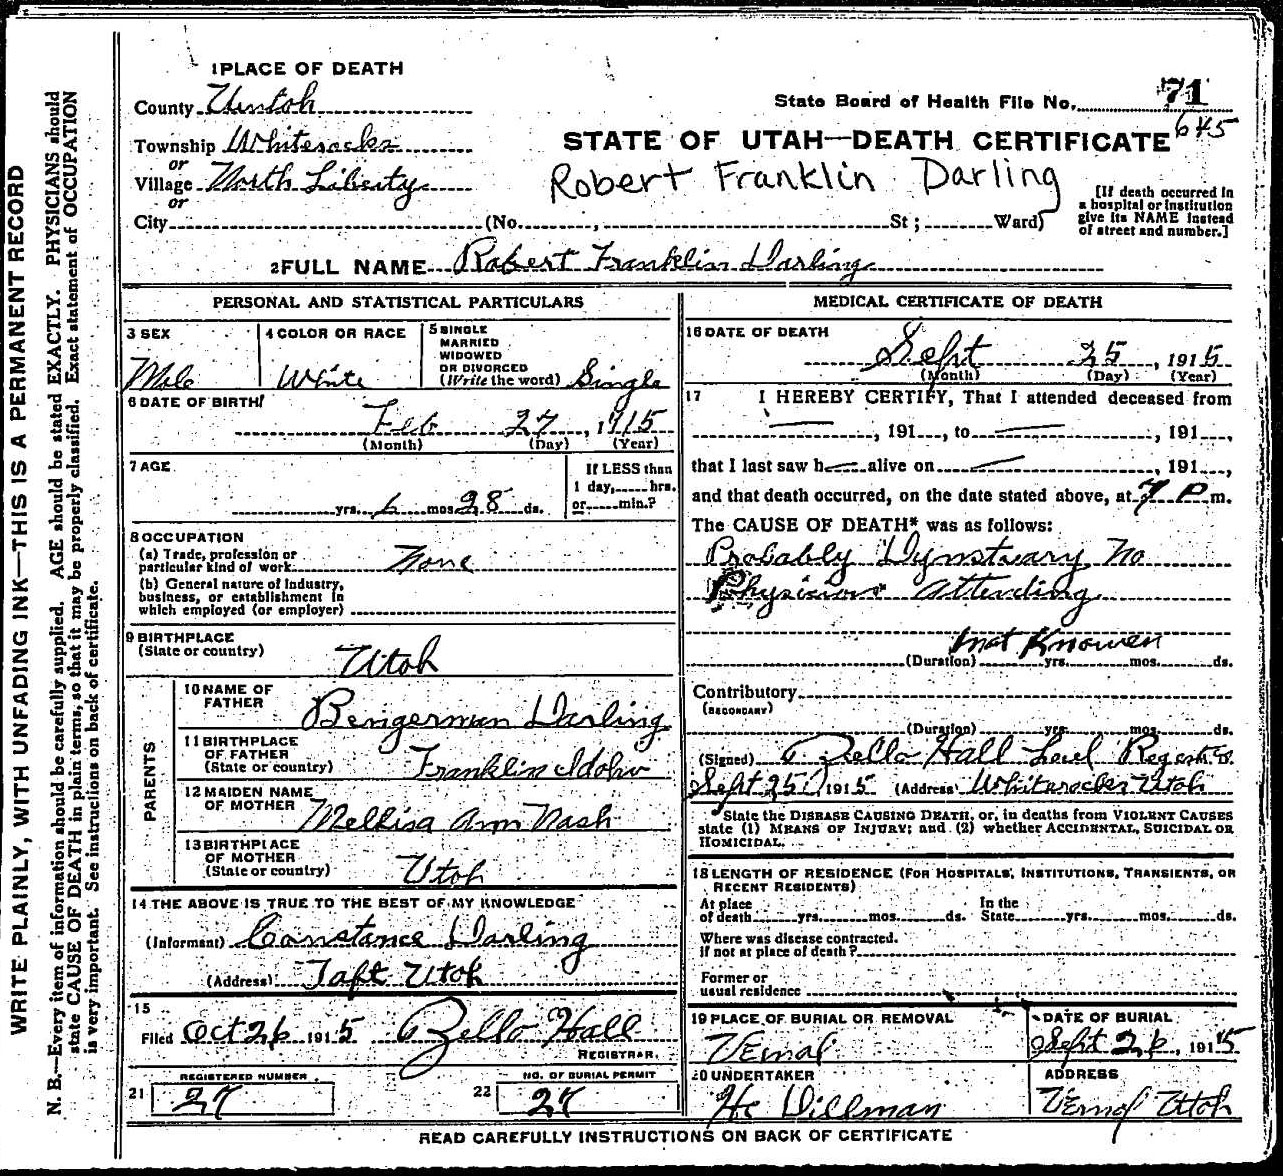 WRITE PLAINLY, WITH UNFADING INK—THIS IS A PERMANENT RECORD
N. B.—Every item of information should be carefully supplied. AGE should be stated EXACTLY. PHYSICIANS should
state CAUSE OF DEATH in plain terms, so that it may be properly classified. Exact statement of OCCUPATION
is very important. See instructions on back of certificate.
1 PLACE OF DEATH
County Uintah
State Board of Health File No. 71
645
Township Whiterocks
or
STATE OF UTAH—DEATH CERTIFICATE
Village North Liberty
or
Robert Franklin Darling
City (No. , St ; Ward)
[If death occurred in
a hospital or institution
give its NAME instead
of street and number.]
2 FULL NAME Robert Franklin Darling
PERSONAL AND STATISTICAL PARTICULARS
3 SEX
Male
4 COLOR OR RACE
White
5 SINGLE
MARRIED
WIDOWED
OR DIVORCED
(Write the word) Single
6 DATE OF BIRTH
Feb 27, 1915
(Month) (Day) (Year)
7 AGE
yrs. 6 mos 28 ds.
If LESS than
1 day, hrs.
or min.?
8 OCCUPATION
(a) Trade, profession or
particular kind of work None
(b) General nature of industry,
business, or establishment in
which employed (or employer)
9 BIRTHPLACE
(State or country) Utah
PARENTS
10 NAME OF
FATHER Bengermun Darling
11 BIRTHPLACE
OF FATHER
(State or country) Franklin Idaho
12 MAIDEN NAME
OF MOTHER Mellisa Ann Nash
13 BIRTHPLACE
OF MOTHER
(State or country) Utah
14 THE ABOVE IS TRUE TO THE BEST OF MY KNOWLEDGE
(Informant) Constance Darling
(Address) Taft Utah
15
Filed Oct 26 1915 Zello Hall
REGISTRAR
REGISTERED NUMBER
21 27
NO. OF BURIAL PERMIT
22 27
MEDICAL CERTIFICATE OF DEATH
16 DATE OF DEATH
Sept 25, 1915
(Month) (Day) (Year)
17 I HEREBY CERTIFY, That I attended deceased from
, 191 , to , 191 ,
that I last saw h alive on , 191 ,
and that death occurred, on the date stated above, at 7 P m.
The CAUSE OF DEATH* was as follows:
Probably Dynstuary No
Physician Attending
not Knowen
(Duration) yrs. mos. ds.
Contributory
(SECONDARY)
(Duration) yrs. mos. ds.
(Signed) Zello Hall
Sept 25 1915 (Address) Whiterocks Utah
*State the DISEASE CAUSING DEATH, or, in deaths from VIOLENT CAUSES
state (1) MEANS OF INJURY; and (2) whether ACCIDENTAL, SUICIDAL OR
HOMICIDAL.
18 LENGTH OF RESIDENCE (FOR HOSPITALS, INSTITUTIONS, TRANSIENTS, OR
RECENT RESIDENTS)
At place
of death yrs. mos. ds.
In the
State yrs. mos. ds.
Where was disease contracted.
if not at place of death?
Former or
usual residence
19 PLACE OF BURIAL OR REMOVAL
Vernal
DATE OF BURIAL
Sept 26, 1915
20 UNDERTAKER
Dillman
ADDRESS
Vernal Utah
READ CAREFULLY INSTRUCTIONS ON BACK OF CERTIFICATE